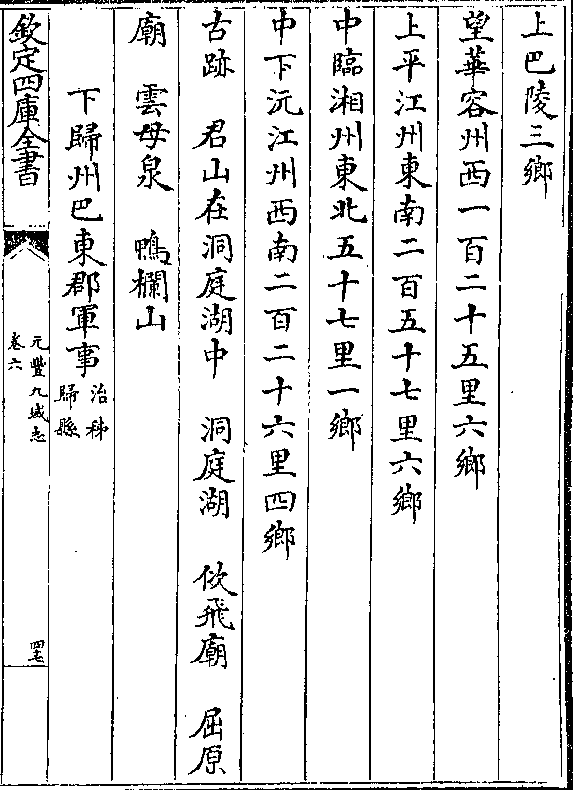 上巴陵三鄉
望華容州西一百二十五里六鄉
上平江州東南二百五十七里六鄉
中臨湘州東北五十七里一鄉
中下沅江州西南二百二十六里四鄉
古跡　君山在洞庭湖中　洞庭湖　佽飛廟　屈原
廟　雲母泉　鴨欄山
下歸州巴東郡軍事治秭歸縣
欽定四庫全書
元豐九域志
卷六
四七